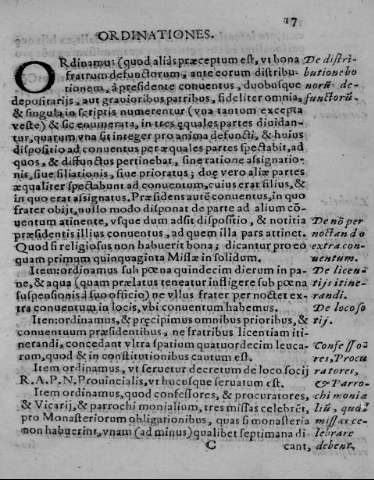 17
ORDINATIONES.
ORdinamus (quod aliàs præceptum est, vt bona
fratrum defunctorum, ante eorum distribu-
tionem, à præsidente conuentus, duobusque
depositarijs, aut grauioribus patribus, fideliter omnia,
& singula in scriptis numerentur (vna tantum excepta
veste) & sic enumerata, in tres æquales partes diuidan-
tur, quarum vna sit integer pro anima defuncti, & huius
dispositio ad conuentus per æquales partes spectabit, ad
quos, & diffunctus pertinebat, sine ratione assignatio-
nis, siue filiationis, siue prioratus; duę verò aliæ partes
æqualiter spectabunt ad conuentum, cuius erat filius, &
in quo erat assignatus. Præsidens autē conuentus, in quo
frater obijt, nullo modo disponat de parte ad alium cō-
uentum atinente, vsque dum adsit dispositio, & notitia
præsidentis illius conuentus, ad quem illa pars attinet.
Quod si religiosus non habuerit bona; dicantur pro eo
quam primum quinquaginta Missæ in solidum.
Item: ordinamus sub pœna quindecim dierum in pa-
ne, & aqua (quam prælatus teneatur infligere sub pœna
suspensionis à suo officio) ne vllus frater per noctet ex-
tra conuentum, in locis, vbi conuentum habemus.
Item: ordinamus, & precipimus omnibus prioribus, &
conuentuum præsidentibus, ne fratribus licentiam iti-
nerandi, concedant vltra spatium quatuordecim leuca-
rum, quod & in constitutionibus cautum est.
Item ordinamus, vt seruetur decretum de loco socij
R. A. P. N. Prouincialis, vt hucusque seruatum est.
Item ordinamus, quod confessores, & procuratores,
& Vicarij, & parrochi monialium, tres missas celebrēt,
pro Monasteriorum obligationibus, quas si monasteria
non habuerint, vnam (ad minus) qualibet septimana di-
C
cant,
De distri-
butione bo
norū de-
functorū.
De nō per
noctando
extra con-
uentum.
De licen-
tijs itine-
randi.
De loco so
cij.
Confesso-
res, Procu
ratores,
& Parro-
chi monia
liū, quas
missas ce-
lebrare
debent.